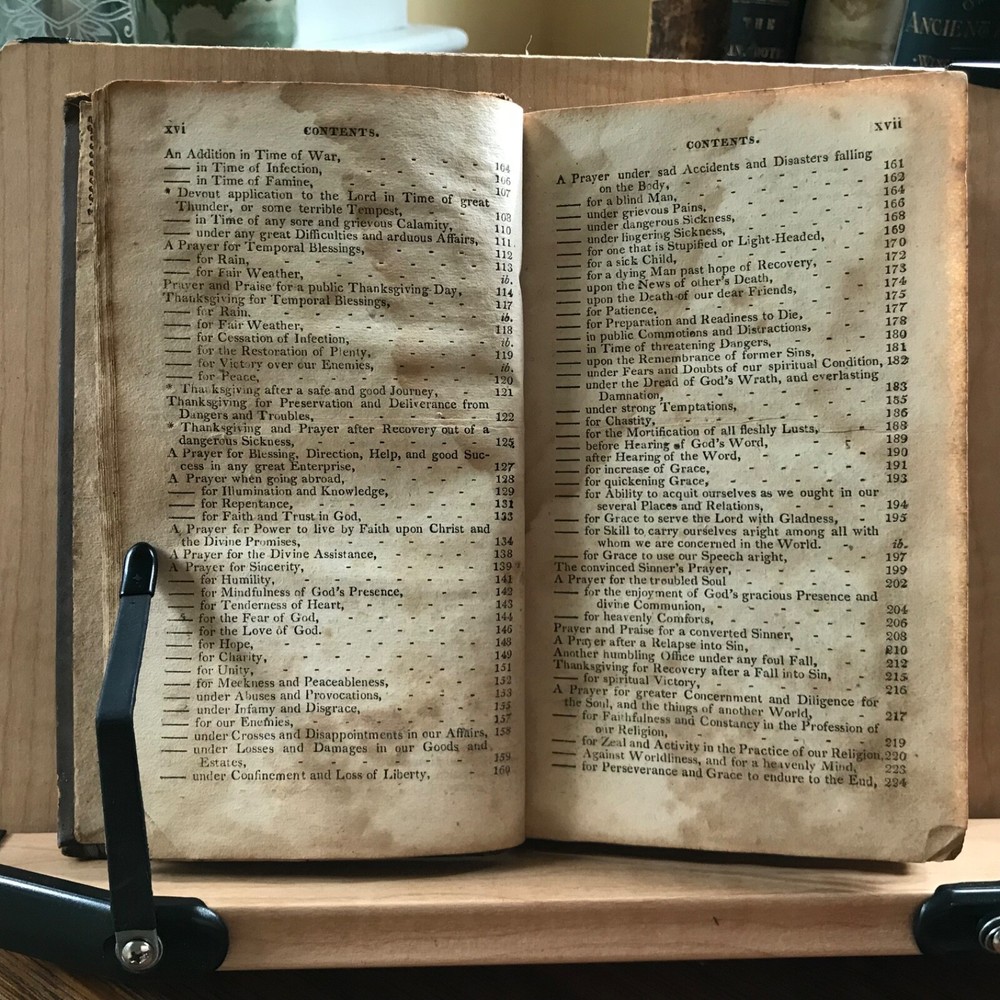 THE
ANCIENT
xvi CONTENTS.
An Addition in Time of War, - - - - - 104
—— in Time of Infection, - - - - - 106
—— in Time of Famine, - - - - - 107
* Devout application to the Lord in Time of great
Thunder, or some terrible Tempest, - - - 108
—— in Time of any sore and grievous Calamity, - 110
—— under any great Difficulties and arduous Affairs, 111
A Prayer for Temporal Blessings, - - - - 112
—— for Rain, - - - - - - 113
—— for Fair Weather, - - - - - ib.
Prayer and Praise for a public Thanksgiving-Day, - 114
Thanksgiving for Temporal Blessings, - - - 117
—— for Rain. - - - - - - ib.
—— for Fair Weather, - - - - - 118
—— for Cessation of Infection, - - - - ib.
—— for the Restoration of Plenty, - - - - 119
—— for Victory over our Enemies, - - - ib.
—— for Peace, - - - - - - 120
* Thanksgiving after a safe and good Journey, - - 121
Thanksgiving for Preservation and Deliverance from
Dangers and Troubles, - - - - - 122
* Thanksgiving and Prayer after Recovery out of a
dangerous Sickness, - - - - - 125
A Prayer for Blessing, Direction, Help, and good Suc-
cess in any great Enterprise, - - - - 127
A Prayer when going abroad, - - - - 128
—— for Illumination and Knowledge, - - - 129
—— for Repentance, - - - - - 131
—— for Faith and Trust in God, - - - - 133
A Prayer for Power to live by Faith upon Christ and
the Divine Promises, - - - - - 134
A Prayer for the Divine Assistance, - - - - 138
A Prayer for Sincerity, - - - - - 139
—— for Humility, - - - - - 141
—— for Mindfulness of God's Presence, - - - 142
—— for Tenderness of Heart, - - - - 143
—— for the Fear of God, - - - - - 144
—— for the Love of God. - - - - - 146
—— for Hope, - - - - - - 148
—— for Charity, - - - - - - 149
—— for Unity, - - - - - - 151
—— for Meekness and Peaceableness, - - - 152
—— under Abuses and Provocations, - - - 153
—— under Infamy and Disgrace, - - - - 155
—— for our Enemies, - - - - - 157
—— under Crosses and Disappointments in our Affairs, 158
—— under Losses and Damages in our Goods and
Estates, - - - - - - 159
—— under Confinement and Loss of Liberty. - - 160
CONTENTS. xvii
A Prayer under sad Accidents and Disasters falling
on the Body, - - - - - 161
—— for a blind Man, - - - - - 162
—— under grievous Pains, - - - - 164
—— under dangerous Sickness, - - - - 166
—— under lingering Sickness, - - - - 168
—— for one that is Stupified or Light-Headed, - 169
—— for a sick Child, - - - - - 170
—— for a dying Man past hope of Recovery, - - 172
—— upon the News of other's Death, - - - 173
—— upon the Death of our dear Friends, - - 174
—— for Patience, - - - - - 175
—— for Preparation and Readiness to Die, - - 177
—— in public Commotions and Distractions, - - 178
—— in Time of threatening Dangers, - - - 180
—— upon the Remembrance of former Sins, - - 181
—— under Fears and Doubts of our spiritual Condition, 182
—— under the Dread of God's Wrath, and everlasting
Damnation, - - - - - 183
—— under strong Temptations, - - - - 185
—— for Chastity, - - - - - 186
—— for the Mortification of all fleshly Lusts, - - 188
—— before Hearing of God's Word, - - - 189
—— after Hearing of the Word, - - - - 190
—— for increase of Grace, - - - - 191
—— for quickening Grace, - - - - 193
—— for Ability to acquit ourselves as we ought in our
several Places and Relations, - - - - 194
—— for Grace to serve the Lord with Gladness, - 195
—— for Skill to carry ourselves aright among all with
whom we are concerned in the World. - - ib.
—— for Grace to use our Speech aright, - - - 197
The convinced Sinner's Prayer, - - - - 199
A Prayer for the troubled Soul - - - - 202
—— for the enjoyment of God's gracious Presence and
divine Communion, - - - - - 204
—— for heavenly Comforts, - - - - 206
Prayer and Praise for a converted Sinner, - - 208
A Prayer after a Relapse into Sin, - - - - 210
Another humbling Office under any foul Fall, - - 212
Thanksgiving for Recovery after a Fall into Sin, - 215
—— for spiritual Victory, - - - - - 216
A Prayer for greater Concernment and Diligence for
the Soul, and the things of another World, - - 217
—— for Faithfulness and Constancy in the Profession of
our Religion, - - - - - 219
—— for Zeal and Activity in the Practice of our Religion, 220
—— Against Worldliness, and for a heavenly Mind, - 223
—— for Perseverance and Grace to endure to the End, 224